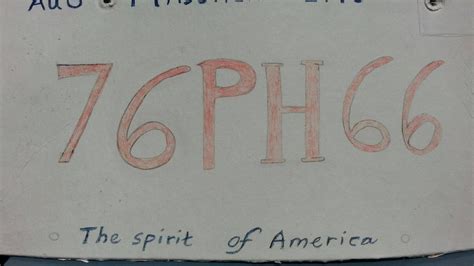 76PH66
The spirit of America